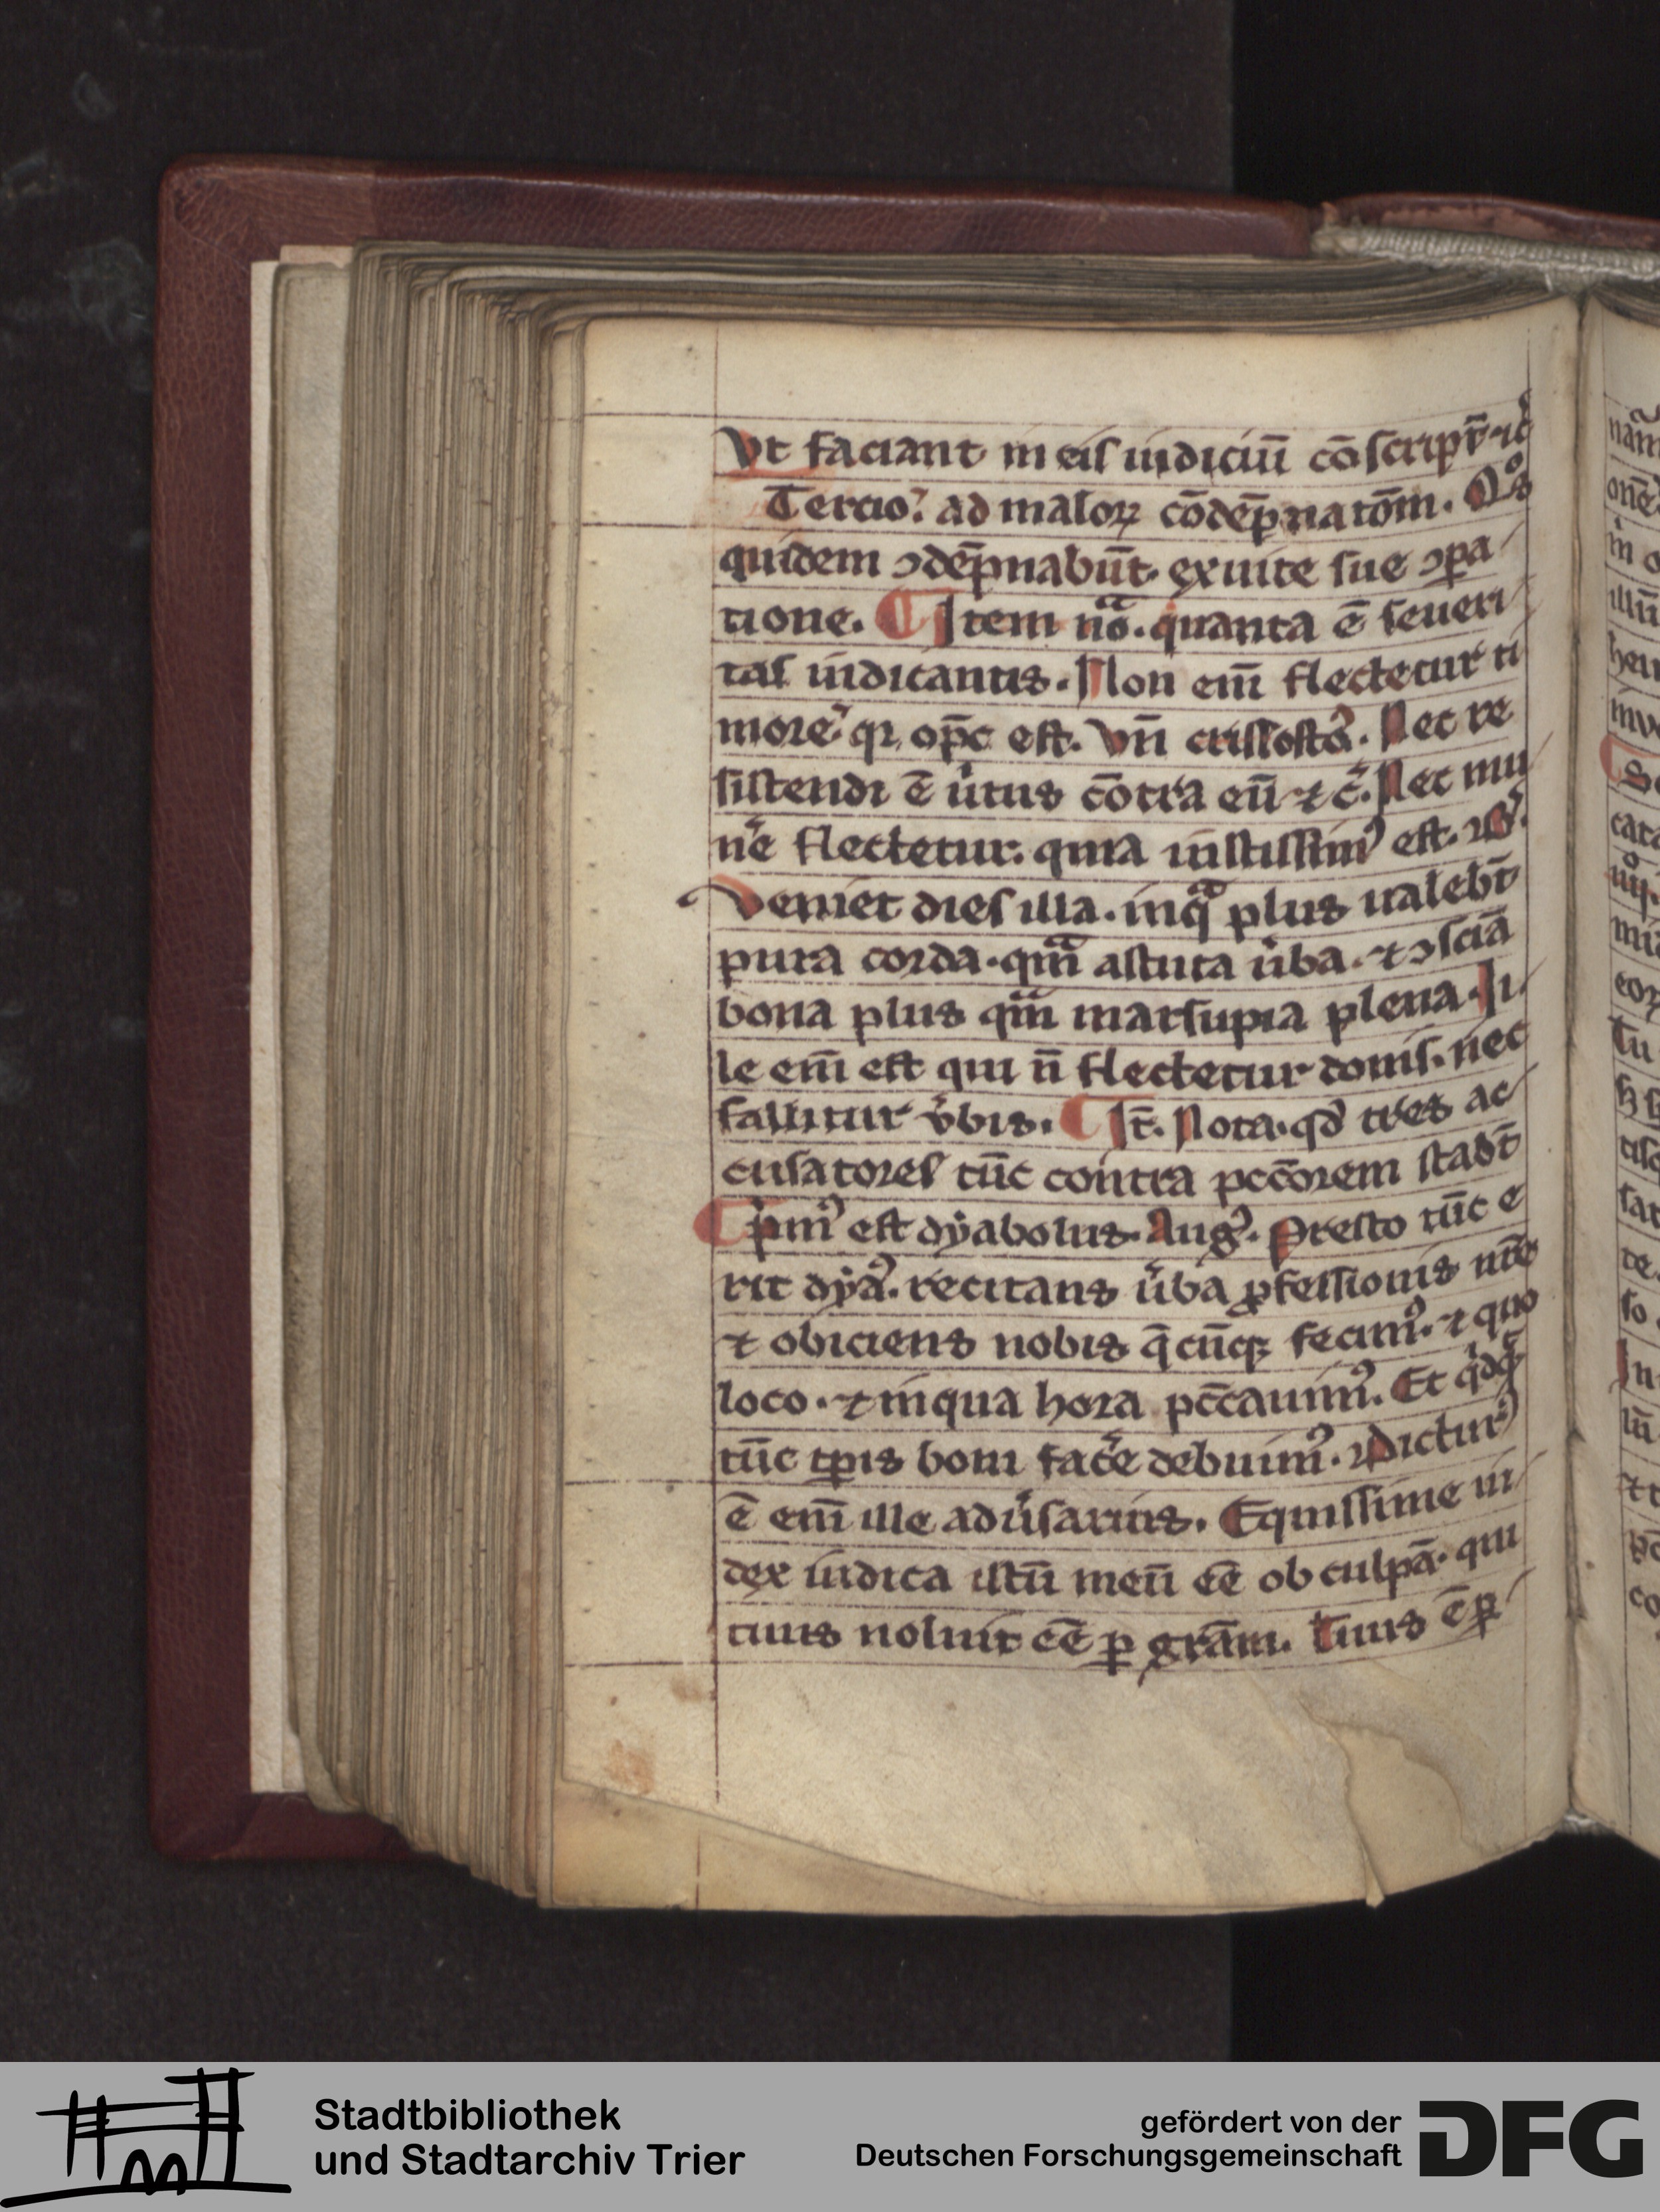 Vt faciant in eis iudiciū cōscript̄
Tercio. ad maloꝝ cōdēpnatōm. Qͦs
quidem ꝯdēpnabūt. ex uite sue ꝯꝑa
tione. ¶ Item noͣ. quanta ē seueri
tas iudicantis. Non em̄ flectetur ti
more. qꝛ op̄c est. Vn̄ crisosto᷒. Nec re
sistendi ē uͥtus cōtra eū ⁊ c̄. Nec mu
ne᷒ flectetur. quia iustissimꝰ est.
Veniet dies illa. in qͣ plus ualebt̄
pura corda. qm̄ astuta u᷒ba. ⁊ ꝯsciā
bona plus qm̄ marsupia plena. Il
le em̄ est qui n̄ flectetur donis. nec
fallitur v᷒bis. ¶ It̄. Nota. qd̓ tres ac
cusatores tūc contra pcc̄orem stabt̄
¶ pͥmꝰ est dyabolus. Augꝰ. Presto tūc e
rit dya᷒. recitans u᷒ba ꝓfessionis nr̄e
⁊ obiciens nobis q̄cūqꝫ fecimꝰ. ⁊ quo
loco. ⁊ in qua hora pcc̄auimꝰ. Et qͥdqͥd
tūc tꝑis boni fac᷒e debuimꝰ. Dictur᷒
ē em̄ ille adu᷒sarius. Equissime iu
dex iudica istū meū eē̄ ob culpā. qui
tuus noluit eē̄ ꝑ gr̄am. Tuus ē ꝑ
nam
Stadtbibliothek
und Stadtarchiv Trier
gefördert von der
Deutschen Forschungsgemeinschaft
DFG